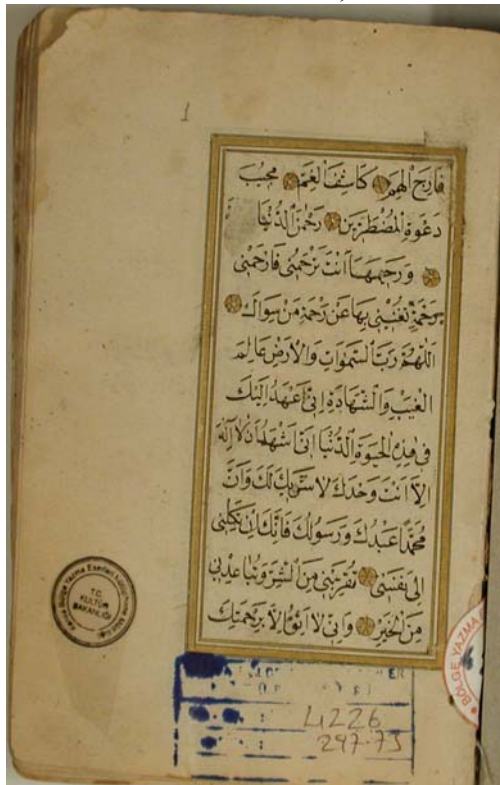 1
فَارِجَ الْهَمِّ كَاشِفَ الْغَمِّ مُجِيبَ
دَعْوَةِ الْمُضْطَرِّينَ رَحْمٰنَ الدُّنْيَا
وَرَحِيمَهَا اَنْتَ تَرْحَمُنِى فَارْحَمْنِى
بِرَحْمَةٍ تُغْنِينِى بِهَا عَنْ رَحْمَةِ مَنْ سِوَاكَ
اَللّٰهُمَّ رَبَّ السَّمٰوَاتِ وَالْاَرْضِ عَالِمَ
الْغَيْبِ وَالشَّهَادَةِ اِنِّى اَعْهَدُ اِلَيْكَ
فِى هٰذِهِ الْحَيٰوةِ الدُّنْيَا اَنِّى اَشْهَدُ اَنْ لَا اِلٰهَ
اِلَّا اَنْتَ وَحْدَكَ لَا شَرِيكَ لَكَ وَاَنَّ
مُحَمَّدًا عَبْدُكَ وَرَسُولُكَ فَاِنَّكَ اِنْ تَكِلْنِى
اِلَى نَفْسِى تُقَرِّبْنِى مِنَ الشَّرِّ وَتُبَاعِدْنِى
مِنَ الْخَيْرِ وَاِنِّى لَا اَثِقُ اِلَّا بِرَحْمَتِكَ
T.C.
KÜLTÜR
BAKANLIĞI
BÖLGE YAZMA
4226
297.73